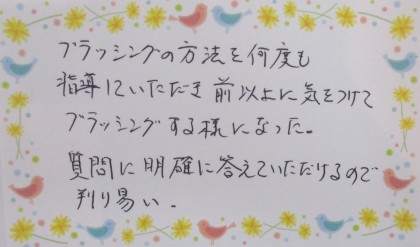 ブラッシングの方法を何度も
指導していただき前以上に気をつけて
ブラッシングする様になった。
質問に明確に答えていただけるので
判り易い。